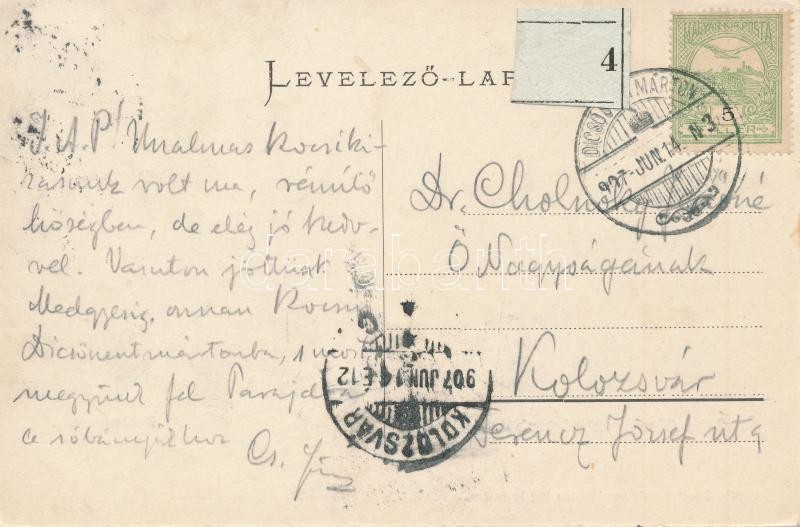 4
MAGYAR KIR. POSTA
5
LEVELEZŐ-LAP
DICSŐ MÁRTON
907 JUN. 14. N 3
J. A. P! Unalmas kocsiki-
rásunk volt ma, rémítő
hőségben, de elég jó kedv-
vel. Vasuton jöttünk
Medgyesig, onnan kocsin
Dicsőszentmártonba, s most
megyünk fel Parajdra
a sóbányákhoz
Cs.
Dr. Cholnoky Jenőné
Ő Nagyságának
Kolozsvár
Ferencz József ut 9
907 JUN. 14 E 12
KOLOZSVÁR
darabanth